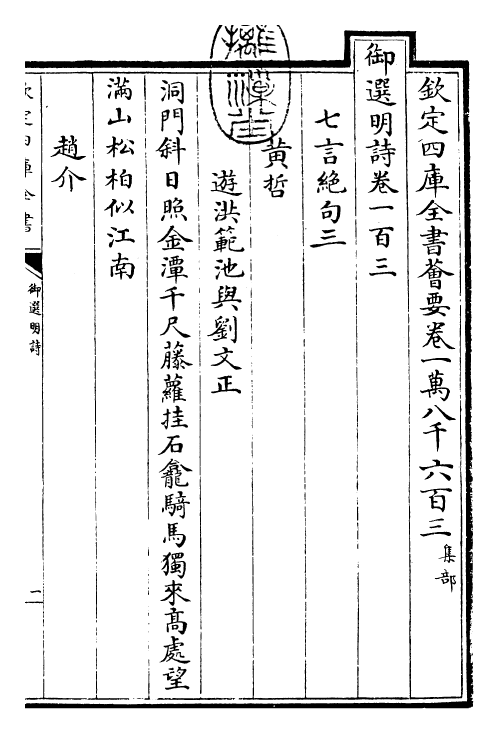 欽定四庫全書薈要卷一萬八千六百三 集部
御選明詩卷一百三
七言絕句三
黃哲
遊洪範池與劉文正
洞門斜日照金潭千尺藤蘿挂石龕騎馬獨來高處望
滿山松柏似江南
趙介
欽定四庫全書
御選明詩
二